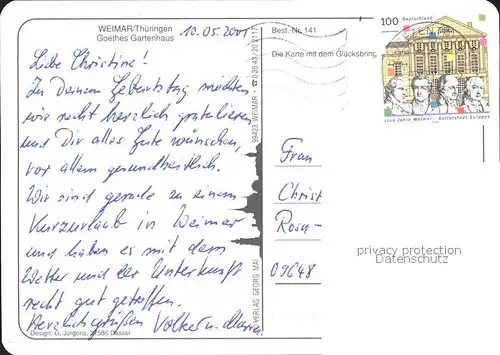 WEIMAR/Thüringen
Goethes Gartenhaus
10.05.2001
Liebe Christine!
Zu Deinem Geburtstag möchten
wir recht herzlich gratulieren
und Dir alles Gute wünschen,
vor allem gesundheitlich.
Wir sind gerade zu einem
Kurzurlaub in Weimar
und haben es mit dem
Wetter und der Unterkunft
recht gut getroffen.
Herzlichgrüßen Volker u. Maria
Design: G. Jürgens, 27586 Dassel
VERLAG GEORG MAI 99423 WEIMAR
Best.-Nr. 141
Die Karte mit dem Glücksbring
100 Deutschland
1100 Jahre Weimar - Kulturstadt Europas
Frau
Christ
Rosa-
09648
privacy protection
Datenschutz